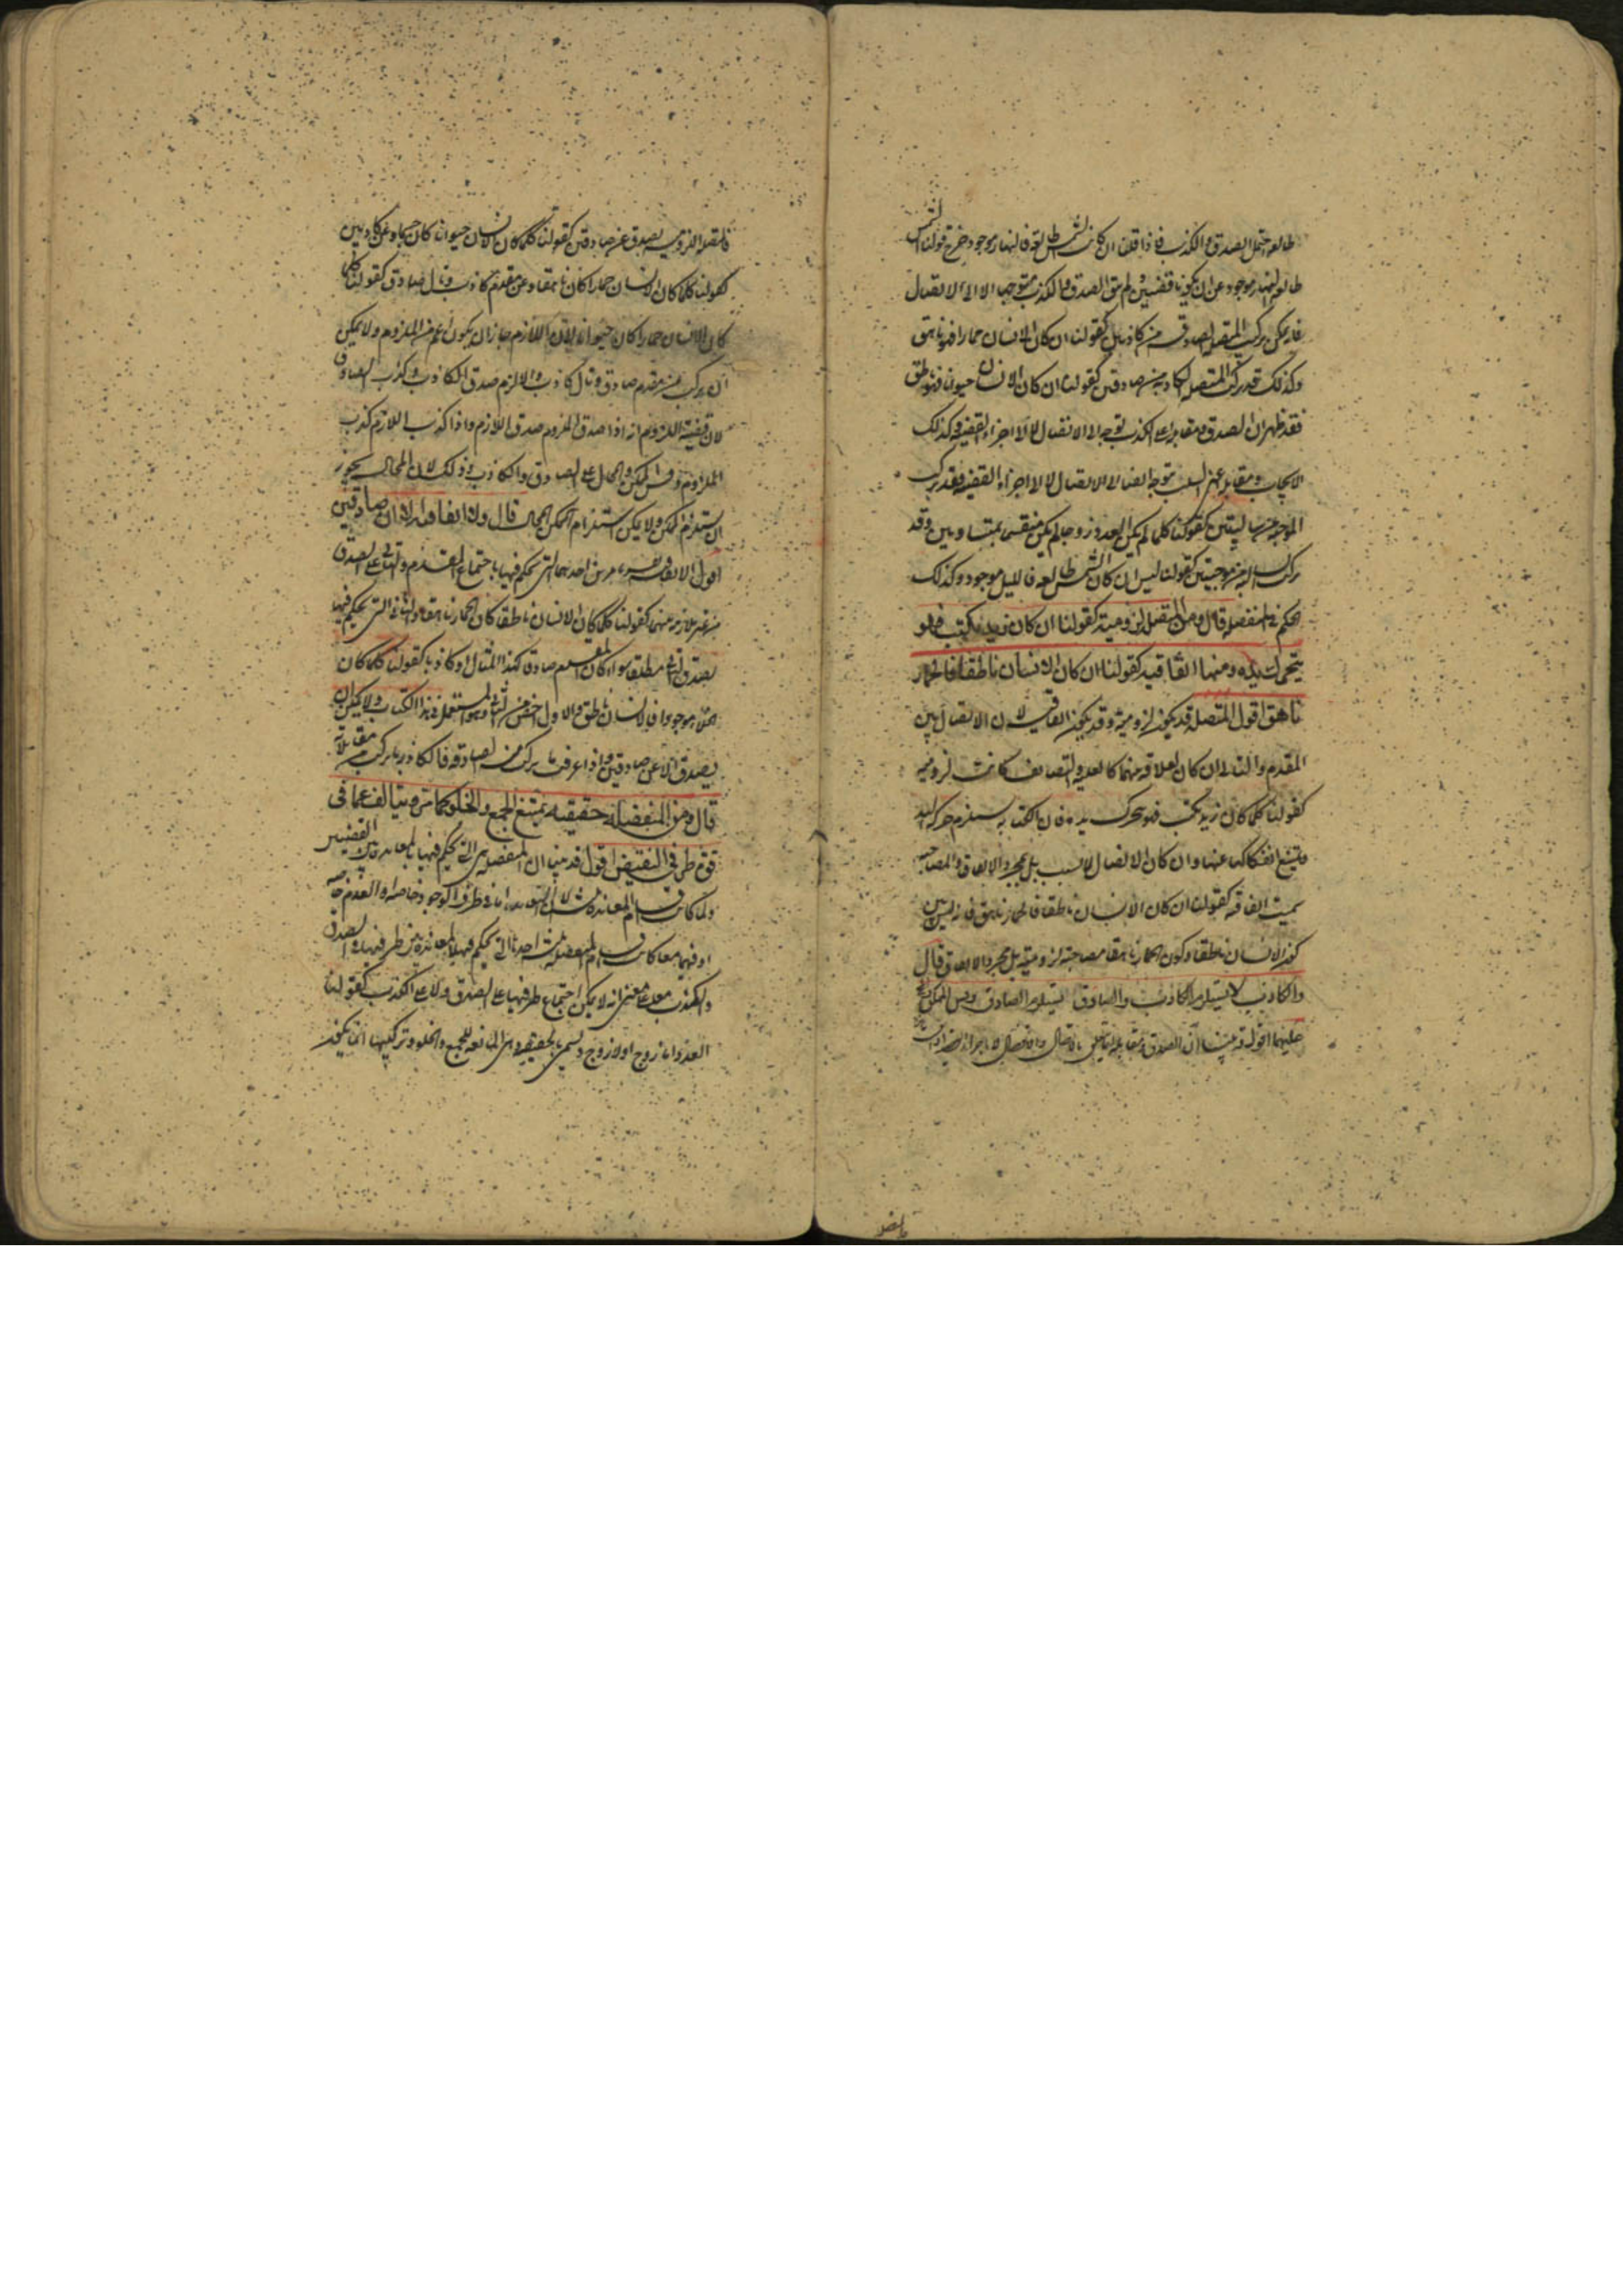 طالعه احتمل الصدق والكذب فاذا قلنا ان كانت الشمس طالعة فالنهار موجود خرج قولنا الشمس
طالعه والنهار موجود عن ان يكونا قضيتين ولم يبق الصدق والكذب متوجها الا الى الاتصال
فاذن يمكن تركب المتصلة الصادقة من كاذبتين كقولنا ان كان الانسان حمارا فهو ناهق
وكذلك قد تركب المتصلة الكاذبة من صادقتين كقولنا ان كان الانسان حيوان فهو ناطق
فقد ظهر ان الصدق ومقابله اعني الكذب توجه الى الاتصال لا الى اجزاء القضية وكذلك
الايجاب ومقابله اعني السلب متوجه ايضا الى الاتصال لا الى اجزاء القضية فقد تركب
الموجبة من سالبتين كقولنا كلما لم يكن العدد زوجا لم يكن منقسم بمتساويين وقد
تركب السالبة من موجبتين كقولنا ليس ان كان الشمس طالعه فالليل موجود وكذلك
الحكم في المنفصلة قال ومن المتصل لزومية كقولنا ان كان زيد يكتب فهو
يتحرك يده ومنها اتفاقيه كقولنا ان كان الانسان ناطقا فالحمار
ناهق اقول المتصلة قد يكون لزومية وقد يكون اتفاقية لان الاتصال بين
المقدم والتالي ان كان لعلاقة منهما كالعلية والتضايف كانت لزومية
كقولنا كلما كان زيد يكتب فهو يتحرك يده فان الكتابة يستلزم حركة اليد
ويمتنع انفكاكها عنها وان كان الاتصال لا لسبب بل لمجرد الاتفاق والمصاحبة
سميت اتفاقية كقولنا ان كان الانسان ناطقا فالحمار ناهق فانه ليس بين
كون الانسان ناطقا وكون الحمار ناهقا مصاحبة لزومية بل لمجرد الاتفاق قال
والكاذب لا يستلزم الكاذب والصادق يستلزم الصادق وقس الممكن
عليهما اقول قد بينا ان الصدق ومقابله يتعلق بالاتصال والانفصال لا باجزائه
والمتصلة
فالمتصلة اللزومية يصدق عن صادقتين كقولنا كلما كان الانسان حيوانا كان جسما وعن كاذبتين
كقولنا كلما كان الانسان حمارا كان ناهقا وعن مقدم كاذب وتال صادق كقولنا كلما
كان الانسان حمارا كان حيوانا لان اللازم جاز ان يكون اعم من الملزوم ولا يمكن
ان يركب من مقدم صادق وتال كاذب والا لزم صدق الكاذب وكذب الصادق
لان قضية اللزوم انه اذا صدق الملزوم صدق اللازم واذا كذب اللازم كذب
الملزوم وقس الممكن والمحال على الصادق والكاذب وذلك لان المحال يجوز
ان يستلزم الممكن ولا يمكن استلزام الممكن المحال قال والاتفاقية لا الا عن صادقتين
اقول الاتفاقية يفسر بامرين احدهما التي يحكم فيها باجتماع المقدم والتالي على الصدق
من غير ملازمة منهما كقولنا كلما كان الانسان ناطقا كان الحمار ناهقا والثاني التي يحكم فيها
بصدق التالي مطلقا سواء كان المقدم صادق كهذا المثال او كاذبا كقولنا كلما كان
الخلاء موجودا فالانسان ناطق والاول اخص من الثاني وهو المستعمل في هذا الكتاب ولا يمكن ان
يصدق الا عن صادقتين واذا عرفت ما يركب منه الصادقة فالكاذبة ما يركب من مقابلاته
قال ومن المنفصلة حقيقيه يمتنع الجمع والخلو كما مر ويتالف عما في
قوة طرفي النقيض اقول قد بينا ان المنفصلة هي التي يحكم فيها بالمعاندة بين القضيتين
ولما كان اقسام المعاندة ثلاثة لان التعاند اما في طرف الوجود خاصة او العدم خاصة
او فيهما معا كان اقسام المنفصلة ثلاثة احدها التي يحكم فيها بالمعاندة بين طرفيها في الصدق
والكذب معا على معنى انه لا يمكن اجتماع طرفيها على الصدق ولا على الكذب كقولنا
العدد اما زوج او لا زوج ويسمى الحقيقية وهي المانعة للجمع والخلو وتركيبها انما يكون